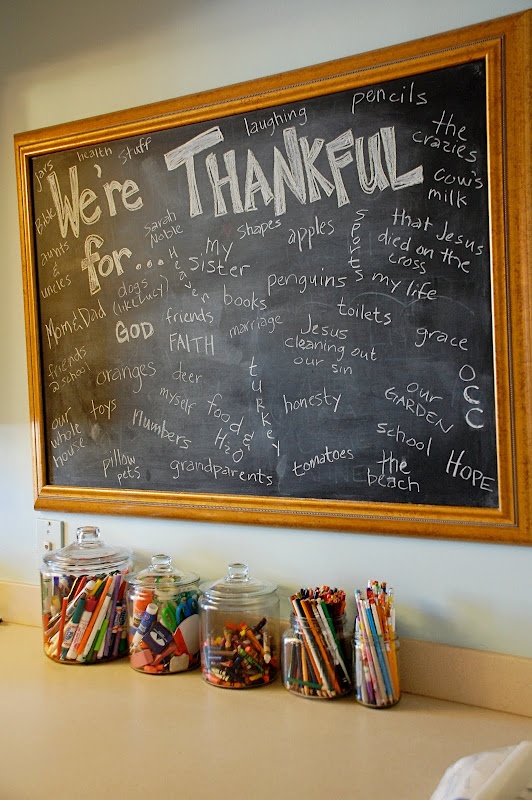 pencils
laughing
the
crazies
health
stuff
jars
We're THANKFUL
for...
cow's
milk
Bible
sarah
Noble
shapes
apples
sports
that Jesus
died on the
cross
aunts
&
uncles
Heaven
My
Sister
dogs
(like Lucy)
penguins
my life
books
toilets
Mom & Dad
GOD
friends
FAITH
marriage
Jesus
cleaning out
our sin
grace
friends
@school
oranges
deer
turkey
OCC
myself
honesty
our
GARDEN
our
whole
house
toys
numbers
food &
H2O
school
pillow
pets
grandparents
tomatoes
the
beach
HOPE